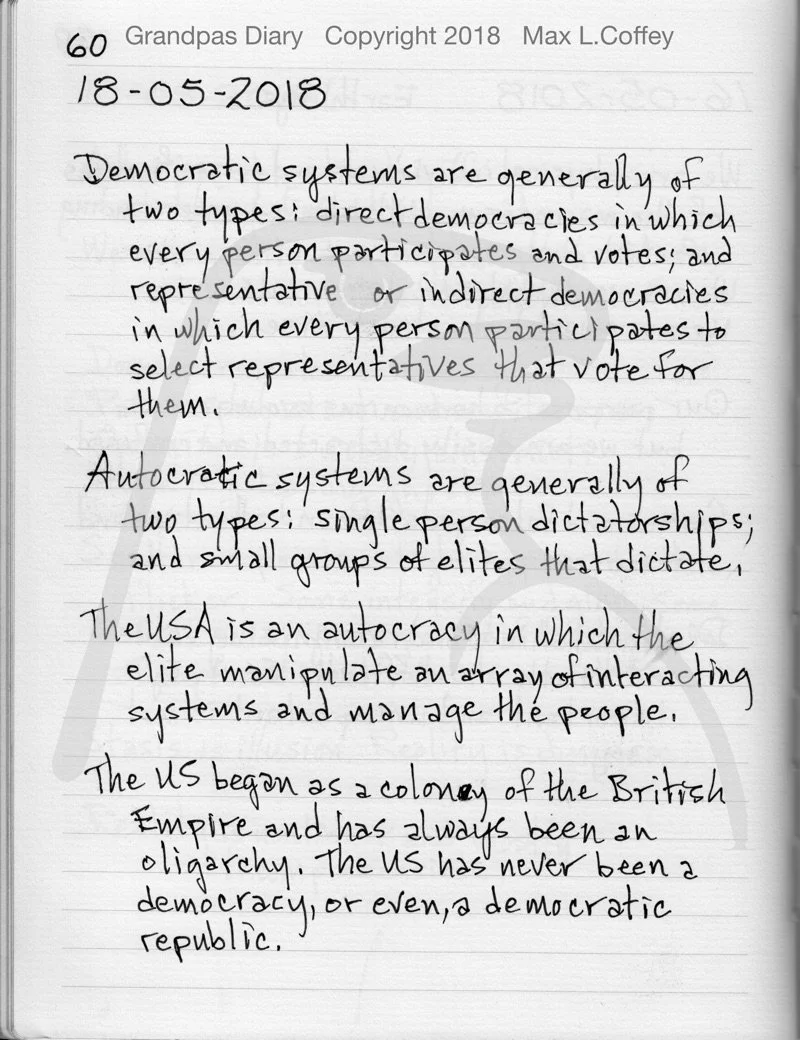 60 Grandpas Diary Copyright 2018 Max L.Coffey
18-05-2018
Democratic systems are generally of
two types: direct democracies in which
every person participates and votes; and
representative or indirect democracies
in which every person participates to
select representatives that vote for
them.
Autocratic systems are generally of
two types: single person dictatorships;
and small groups of elites that dictate.
The USA is an autocracy in which the
elite manipulate an array of interacting
systems and manage the people.
The US began as a colony of the British
Empire and has always been an
oligarchy. The US has never been a
democracy, or even, a democratic
republic.